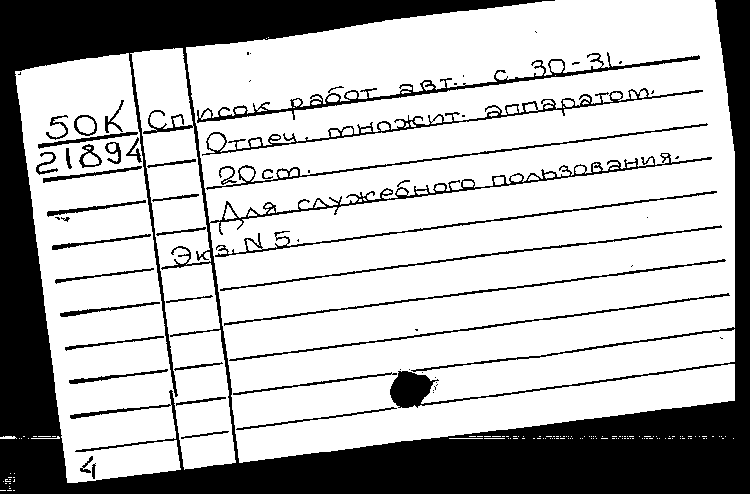 50К Список работ авт.: с. 30-31.
21894 Отпеч. множит. аппаратом.
20 cm.
Для служебного пользования.
Экз. N 5.
4